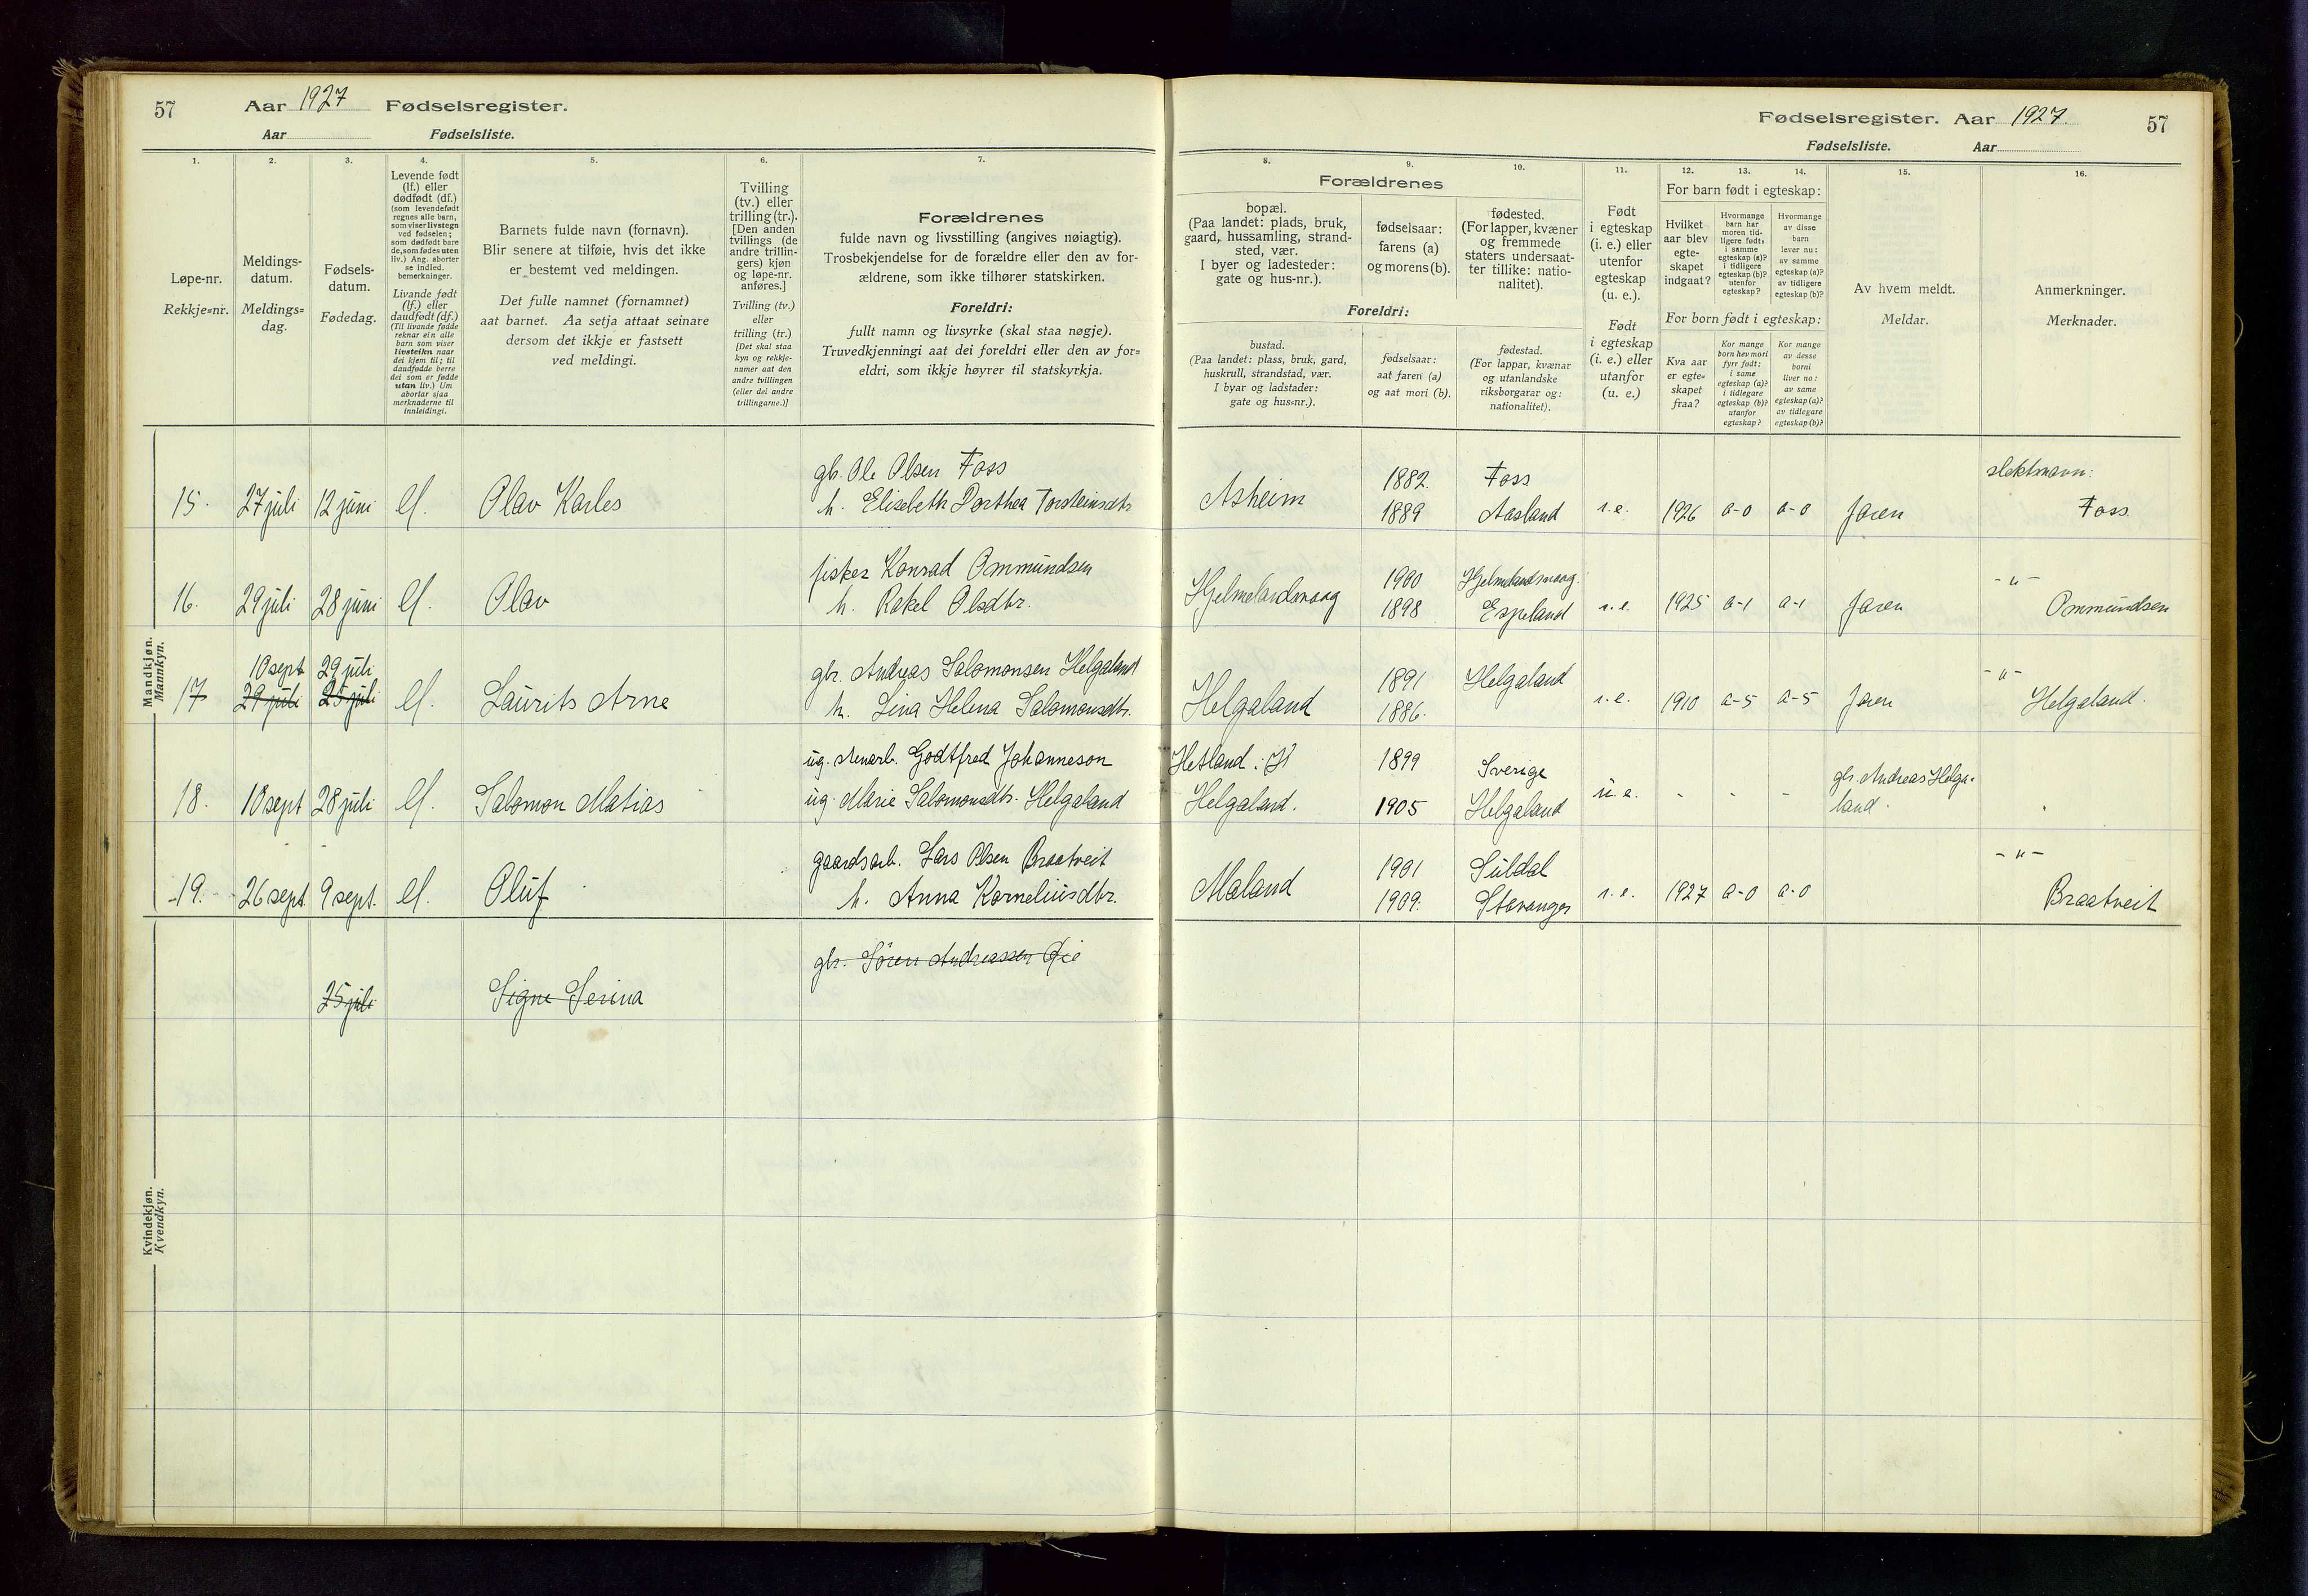 57 Aar 1927 Fødselsregister.
Aar Fødselsliste.
1. 2. 3. 4. 5. 6. 7.
Løpe-nr.
Rekkje=nr.
Meldings-
datum.
Meldings=
dag.
Fødsels-
datum.
Fødedag.
Levende født
(lf.) eller
dødfødt (df.)
(som levendefødt
regnes alle barn,
som viser livstegn
ved fødselen;
som dødfødt bare
de, som fødes uten
liv.) Ang. aborter
se indled.
bemerkninger.
Livande født
(lf.) eller
daudfødt (df.)
(Til livande fødde
reknar ein alle
barn som viser
livsteikn naar
dei kjem til; til
daudfødde berre
dei som er fødde
utan liv.) Um
abortar sjaa
merknaderne til
innleidingi.
Barnets fulde navn (fornavn).
Blir senere at tilføie, hvis det ikke
er bestemt ved meldingen.
Det fulle namnet (fornamnet)
aat barnet. Aa setja attaat seinare
dersom det ikkje er fastsett
ved meldingi.
Tvilling
(tv.) eller
trilling (tr.).
[Den anden
tvillings (de
andre trillin-
gers) kjøn
og løpe-nr.
anføres.]
Tvilling (tv.)
eller
trilling (tr.)
[Det skal staa
kyn og rekkje-
numer aat den
andre tvillingen
(eller dei andre
trillingarne.)]
Forældrenes
fulde navn og livsstilling (angives nøiagtig).
Trosbekjendelse for de forældre eller den av for-
ældrene, som ikke tilhører statskirken.
Foreldri:
fullt namn og livsyrke (skal staa nøgje).
Truvedkjenningi aat dei foreldri eller den av for=
eldri, som ikkje høyrer til statskyrkja.
Mandkjøn.
Mannkyn.
gbr. Ole Olsen Foss
15. 27 juli 12 juni lf. Olav Karles h. Elisebeth Dorthea Torsteinsdtr.
fisker Konrad Ommundsen
16. 29 juli 28 juni lf. Olav h. Rakel Olsdtr.
10 sept 29 juli gbr. Andreas Salomonsen Helgaland
17 29 juli 25 juli lf. Laurits Arne h. Lina Helena Salomonsdtr.
ug. Godtfred Johanneson
18. 10 sept 28 juli lf. Salomon Matias ug. Marie Salomonsdtr. Helgaland
gaardsarb. Lars Olsen Braatveit
19. 26 sept. 9 sept. lf. Oluf h. Anna Korneliusdtr.
Kvindekjøn.
Kvendkyn.
gbr. Sören Andreassen Öie
25 juli Signe Serina
Fødselsregister. Aar 1927. 57
Fødselsliste. Aar
8. 9. 10. 11. 12. 13. 14. 15. 16.
Forældrenes
bopæl.
(Paa landet: plads, bruk,
gaard, hussamling, strand-
sted, vær.
I byer og ladesteder:
gate og hus-nr.).
fødselsaar:
farens (a)
og morens (b).
fødested.
(For lapper, kvæner
og fremmede
staters undersaat-
ter tillike: natio-
nalitet).
Foreldri:
bustad.
(Paa landet: plass, bruk, gard,
huskrull, strandstad, vær.
I byar og ladstader:
gate og hus=nr.).
fødselsaar:
aat faren (a)
og aat mori (b).
fødestad.
(For lappar, kvænar
og utanlandske
riksborgarar og:
nationalitet).
Født
i egteskap
(i. e.) eller
utenfor
egteskap
(u. e.).
Født
i egteskap
(i. e.) eller
utanfor
(u. e.)
For barn født i egteskap:
Hvilket
aar blev
egte-
skapet
indgaat?
Hvormange
barn har
moren tid-
ligere født:
i samme
egteskap (a)?
i tidligere
egteskap (b)?
utenfor
egteskap?
Hvormange
av disse
barn
lever nu:
av samme
egteskap (a)?
av tidligere
egteskap (b)?
For born født i egteskap:
Kva aar
er egte=
skapet
fraa?
Kor mange
born hev mori
fyrr født:
i same
egteskap (a)?
i tidlegare
egteskap (b)?
utanfor
egteskap?
Kor mange
av desse
borni
liver no:
av same
egteskap (a)?
av tidlegare
egteskap (b)?
Av hvem meldt.
Meldar.
Anmerkninger.
Merknader.
1882. Foss slektsnavn:
Asheim 1889 Aasland i.e. 1926 a-0 a-0 Faren Foss
1900 Hjelmelandsvaag. -"-
Hjelmelandsvaag 1898 Espeland i.e. 1925 a-1 a-1 Faren Ommundsen
1891 Helgaland -"-
Helgaland 1886. i.e. 1910 a-5 a-5 Faren Helgaland.
Hetland 1899 Sverige gbr. Andreas Helga-
Helgaland. 1905 Helgaland u.e. - - - land.
1901 Suldal -"-
Maland 1909. Stavanger i.e. 1927 a-0 a-0 Braatveit